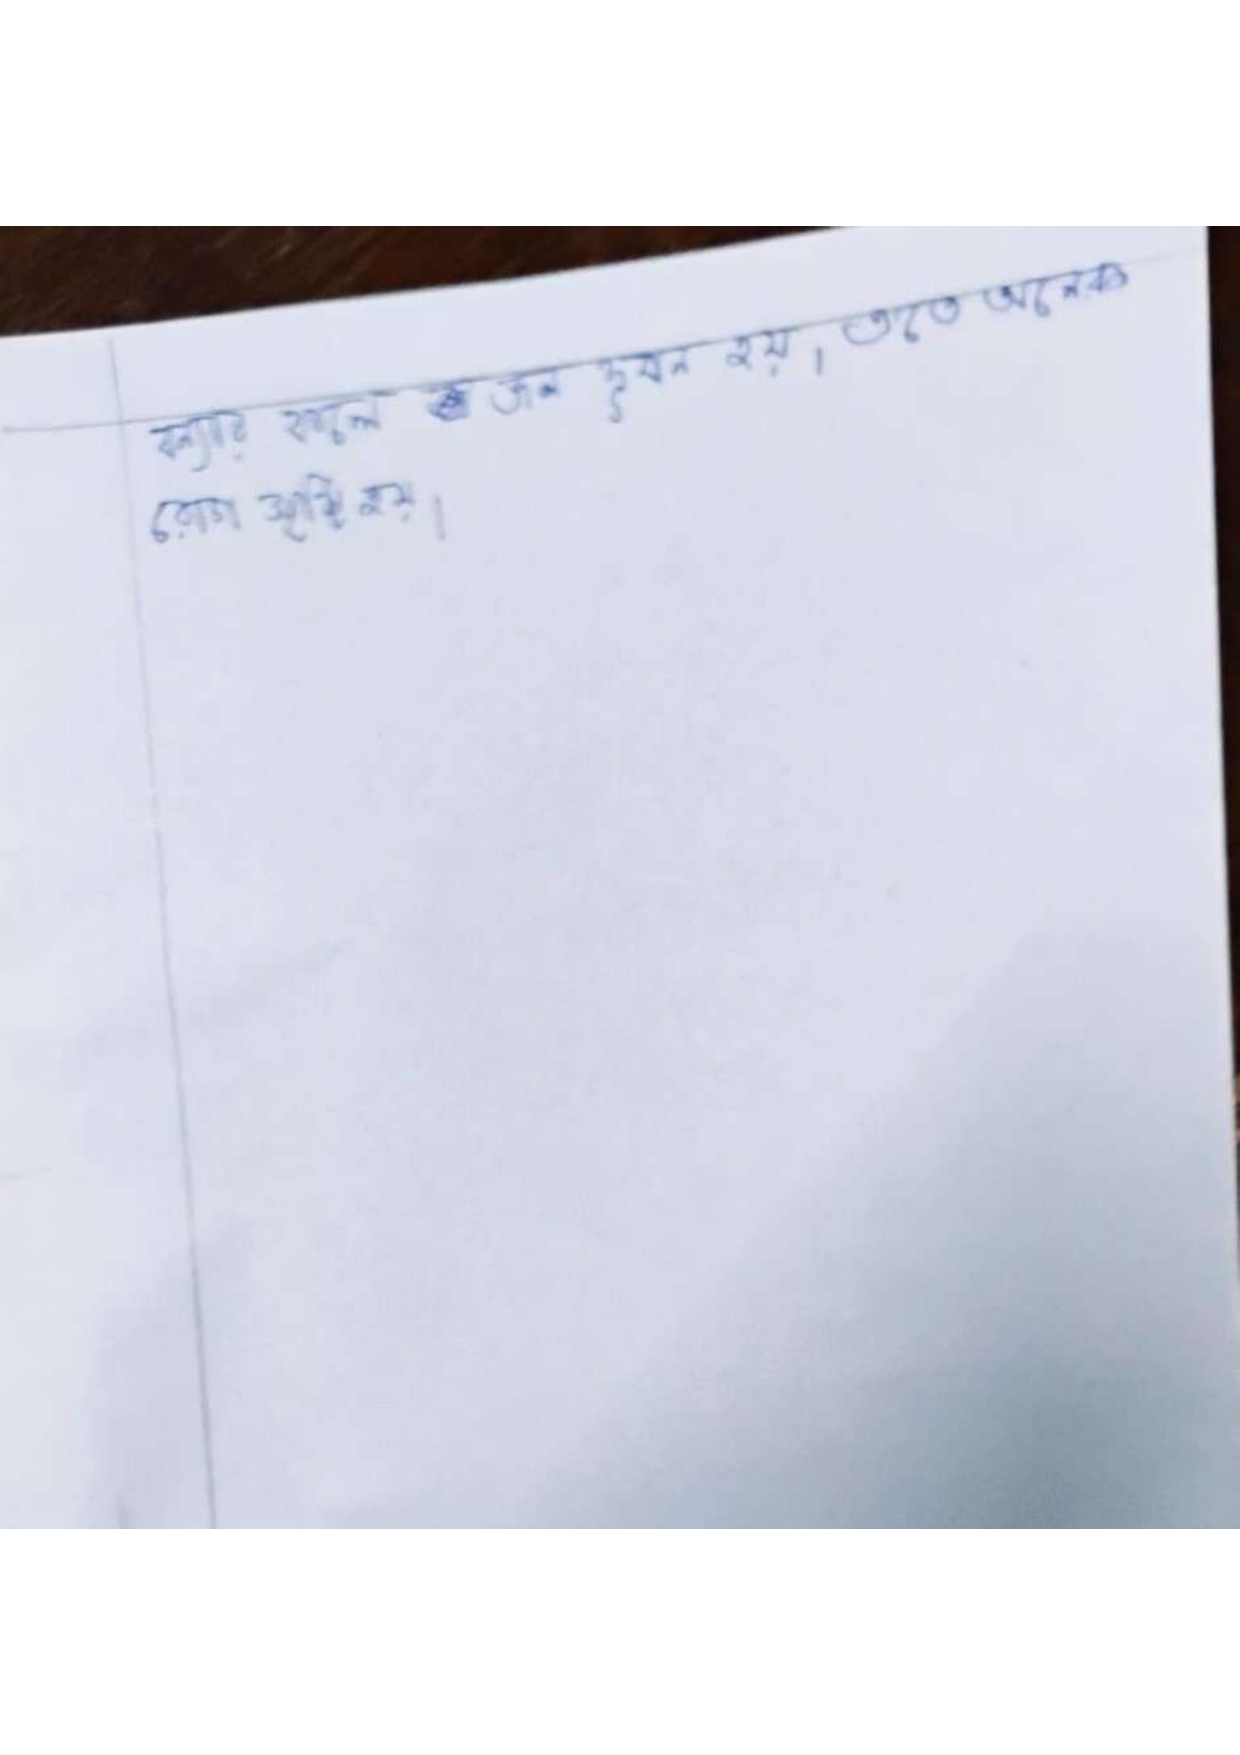 বন্যার ফলে জল দুষন হয়। এতে অনেক
রোগ সৃষ্টি হয়।